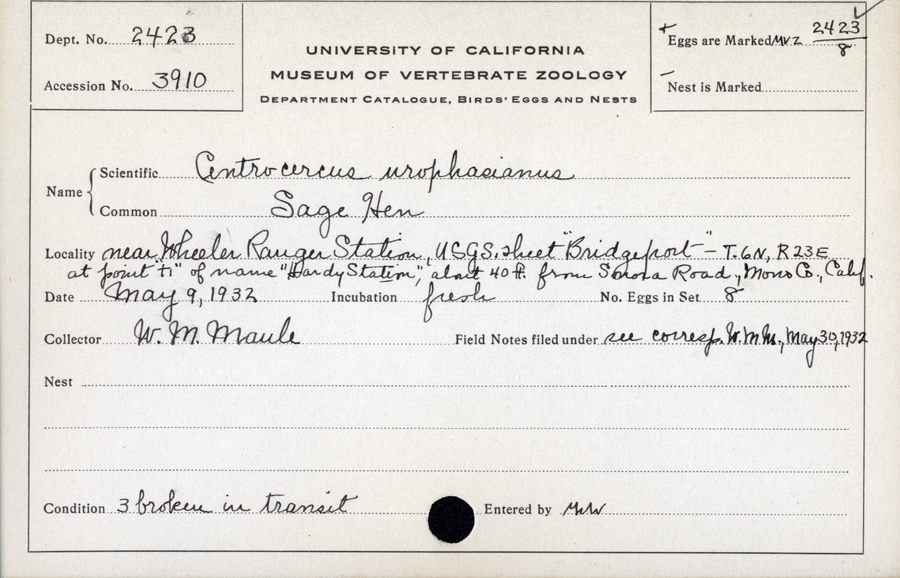 Dept. No. 2423
Accession No. 3910
UNIVERSITY OF CALIFORNIA
MUSEUM OF VERTEBRATE ZOOLOGY
DEPARTMENT CATALOGUE, BIRDS' EGGS AND NESTS
+ Eggs are Marked MVZ 2423/8
– Nest is Marked
Name
Scientific Centrocercus urophasianus
Common Sage Hen
Locality near Wheeler Ranger Station, USGS. sheet "Bridgeport" – T.6N, R23E
at point "ti" of name "Hardy Station", about 40 ft. from Sonora Road, Mono Co., Calif.
Date May 9, 1932 Incubation fresh No. Eggs in Set 8
Collector W. M. Maule Field Notes filed under see corresp. W.M.M., May 30, 1932
Nest
Condition 3 broken in transit Entered by